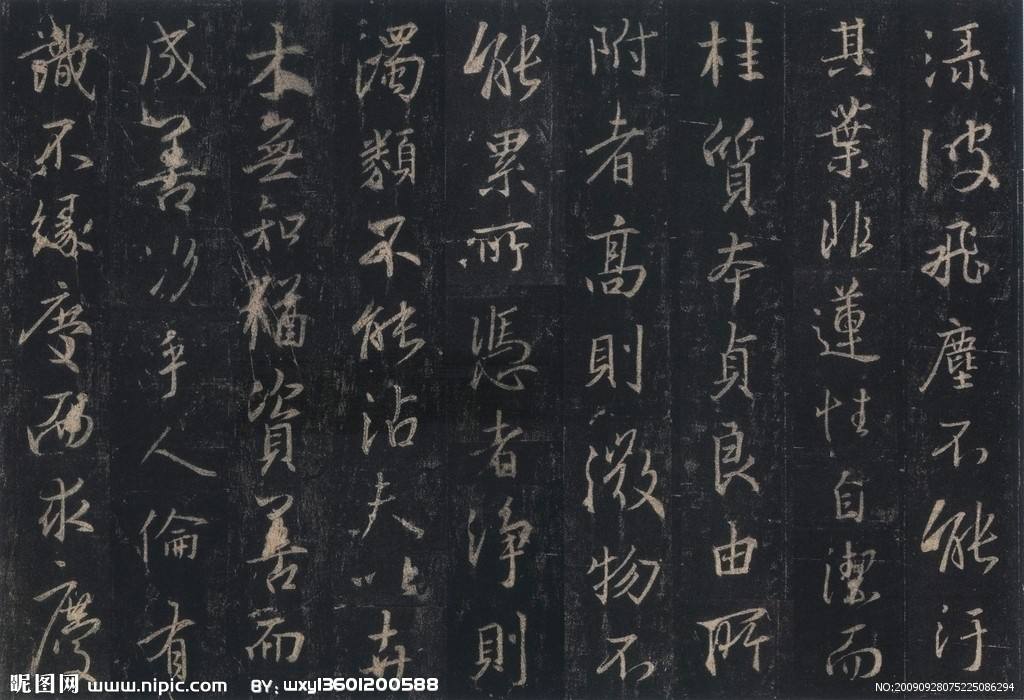 淥波飛塵不能汙
其葉非蓮性自潔而
桂質本貞良由所
附者高則微物不
能累所憑者淨則
濁類不能沾夫以卉
木無知猶資善而
成善況乎人倫有
識不緣慶而求慶
昵图网 www.nipic.com BY: wxy13601200588
NO:20090928075225086294